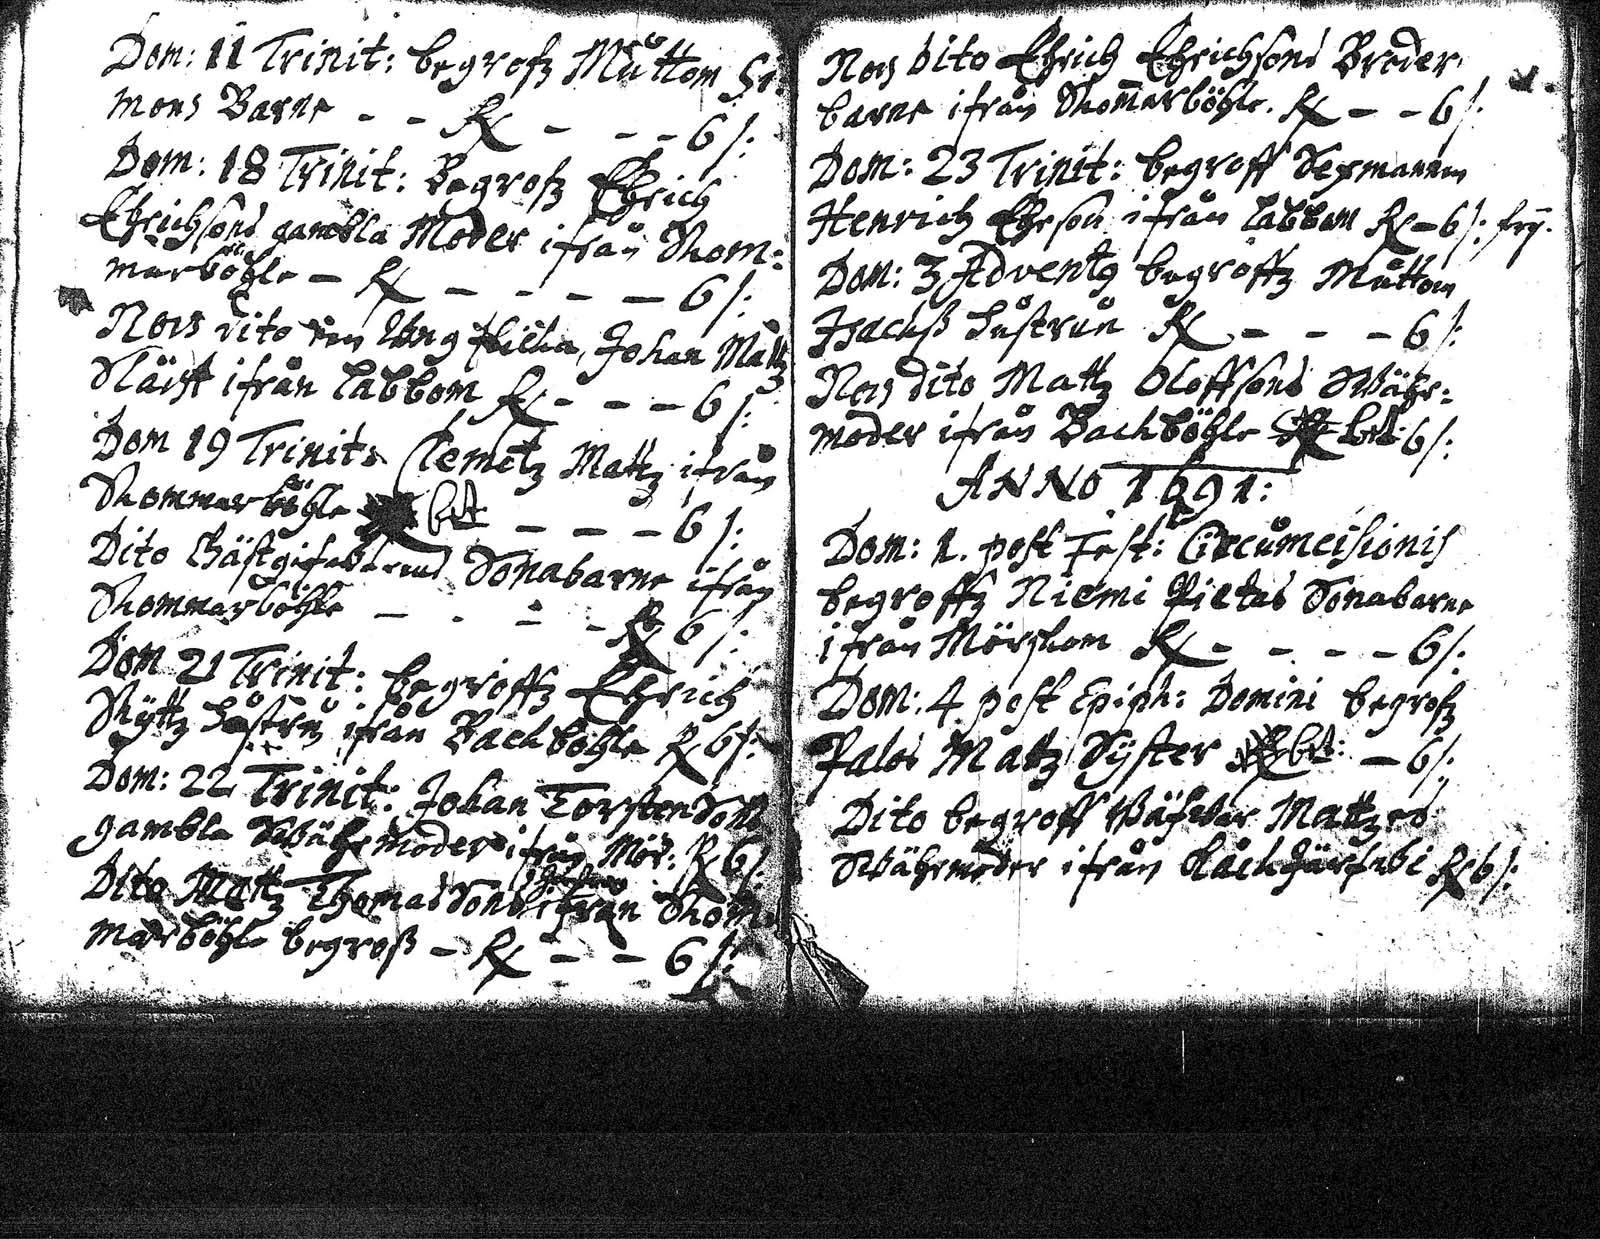 Dom: 11 Trinit: begrofz Můttom Si:
mons Barne - - Rx - - - 6 /:
Dom: 18 Trinit: Begrofz Ehrich
Ehrichsons gambla Moder ifrån Skom=
marböhle - Rx - - - - 6 /:
Noch dito een Ung , Johan Mattz
Slärft ifrån Labbom Rx - - - 6 /:
Dom 19 Trinits Clemetz Mattz ifrån
Skommarböhle bet - - - 6 /:
Dito Sonabarne ifrån
Skommarböhle - - - - Rx 6 /:
Dom 21 Trinit: begroffz Ehrich
Skyttz hůstru ifrån Bachböhle Rx 6 /:
Dom: 22 Trinit: Johan Torstensons
gambla Swähr moder ifrån Mör: Rx 6 /:
Dito Mattz Thomasons ifrån Skom
marböhle begroß - Rx - - 6 /:
Noch dito Ehrich Ehrichsons Broder
barne ifrån Skommarböhle. Rx - - 6 /:
Dom: 23 Trinit: begroff Sexmannen
Henrich Ehrson ifrån Labbom Rx - 6 /: frij.
Dom: 3 Adventz begroffz Můttom
Isachß hůstrun Rx - - - 6 /:
Noch dito Mattz Oloffsons Swähr=
moder ifrån Bachböhle bet 6 /:
ANNO 1691:
Dom: 1. post Fest: Circůmcisionis
begroffz Niemi Pietas Sonabarne
ifrån Mörskom Rx - - - - 6 /:
Dom: 4 post Epiph: Domini begrofz
Palos Mattz Syster bet: - 6 /:
Dito begroff Mattzes
Swährmoder ifrån Rx 6 /: